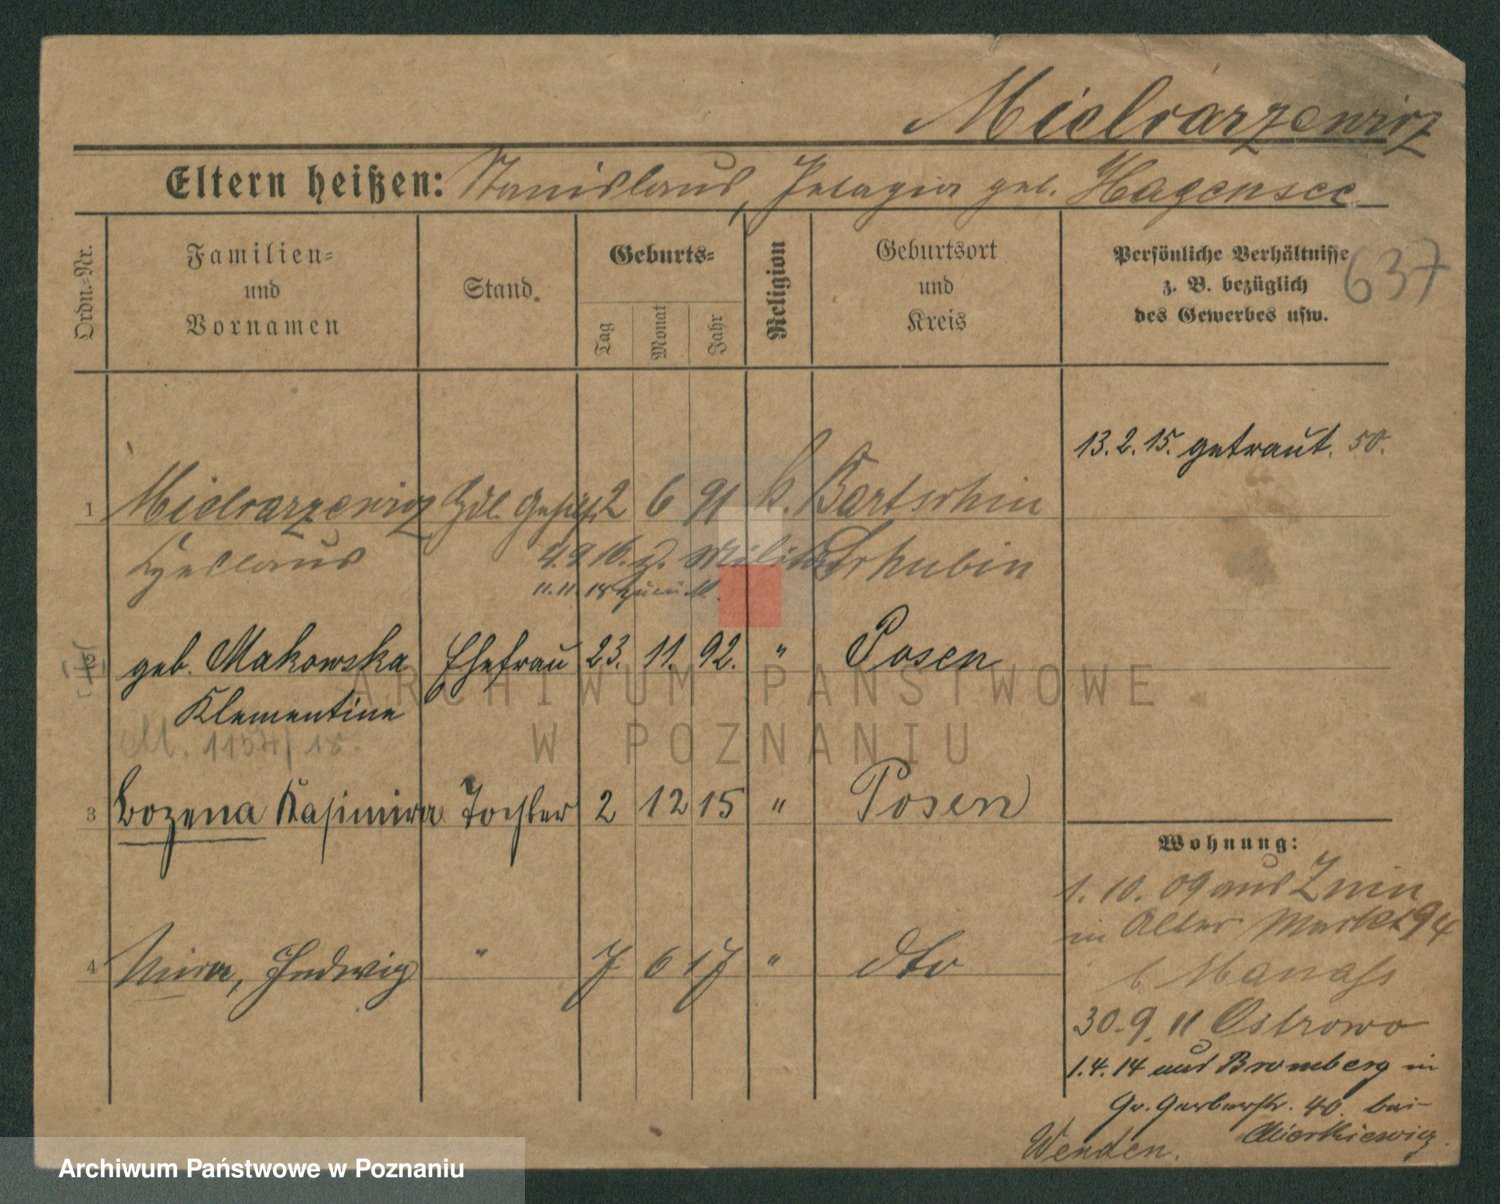 Mielcarzewicz
Eltern heißen: Stanislaus, Pelagia geb. Hagensee
Ordn.-Nr.
Familien- und Vornamen
Stand.
Geburts-
Tag Monat Jahr
Religion
Geburtsort und Kreis
Persönliche Verhältnisse
z. B. bezüglich
des Gewerbes usw.
637
13.2.15. getraut. 50.
1 Mielcarzewicz Hdl. Gehilfe 2 6 91 k. Bartschin
4.9.16. z. Militär Schubin
11.11.18 zurück
geb. Makowska Ehefrau 23. 11. 92. " Posen
Klementine
M. 1154/18.
3 Bozena Kasimira Tochter 2 12 15 " Posen
4 Mira, Hedwig " 7 6 17 " dto
Wohnung:
1.10.09 aus Znin
in Alter Markt 94
b. Manass
30.9.11 Ostrowo
1.4.14 aus Bromberg in
Gr. Gerberstr. 40. bei
Wenden.
ARCHIWUM PAŃSTWOWE
W POZNANIU
Archiwum Państwowe w Poznaniu